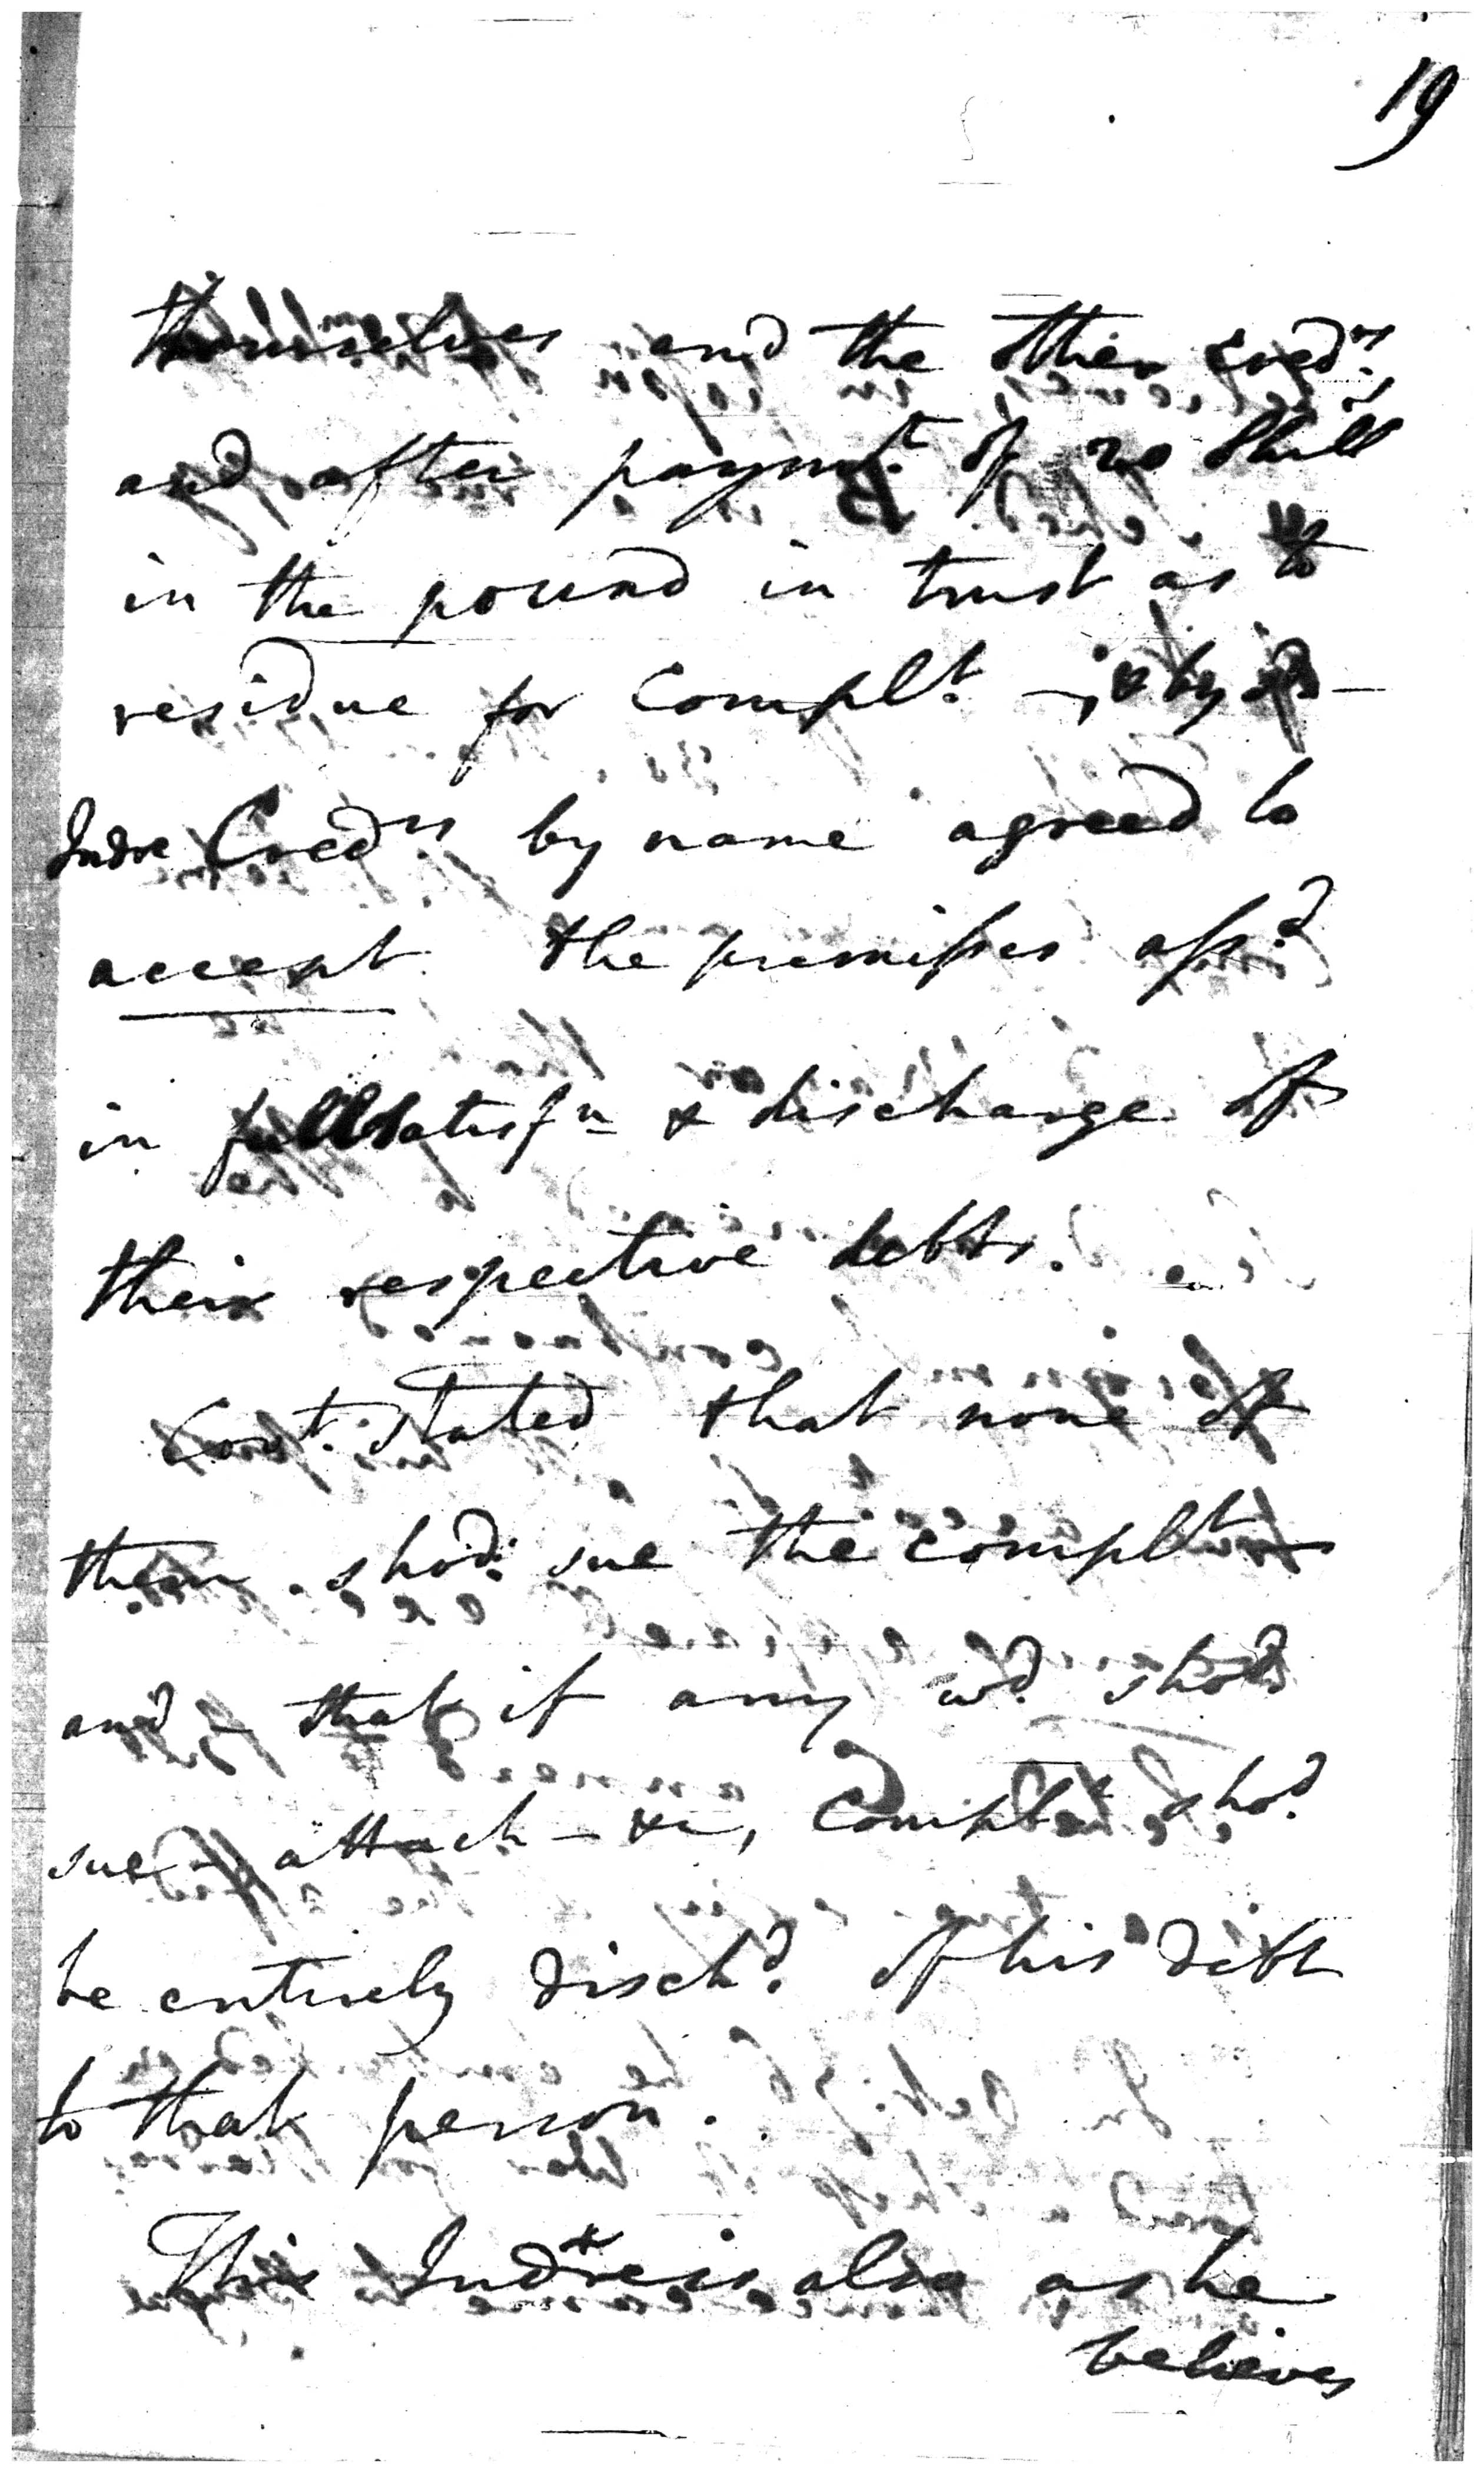 19
themselves and the other Cred.rs,
and after paym.t of 20 Shill
in the pound in trust as to
residue for Compl.t — & by sd —
Indre Cred.rs by name agreed to
accept the premisses ass.d
in full satisf.n & discharge of
their respective debts.
Cov.t stated that none of
them shod: sue the complt
and that if any wd. shod
sue — attach — &c, Complt shod.
be entirely disch.d of his debt
to that person.
This Indre is also as he
believes